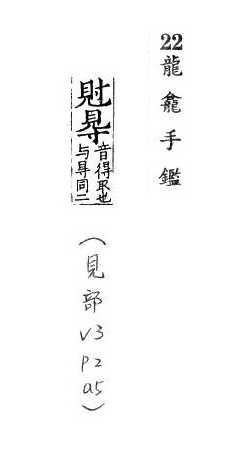 22龍龕手鑑
䙷㝵音得取也
与㝵同二
(見部
v3
p2
a5)